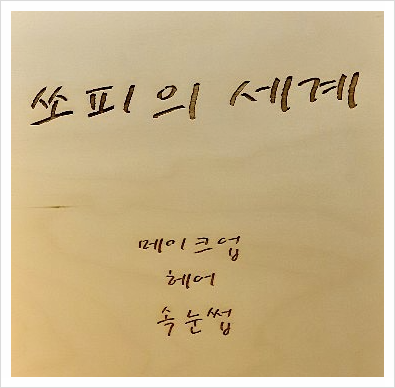 쏘피의 세계
메이크업
헤어
속눈썹